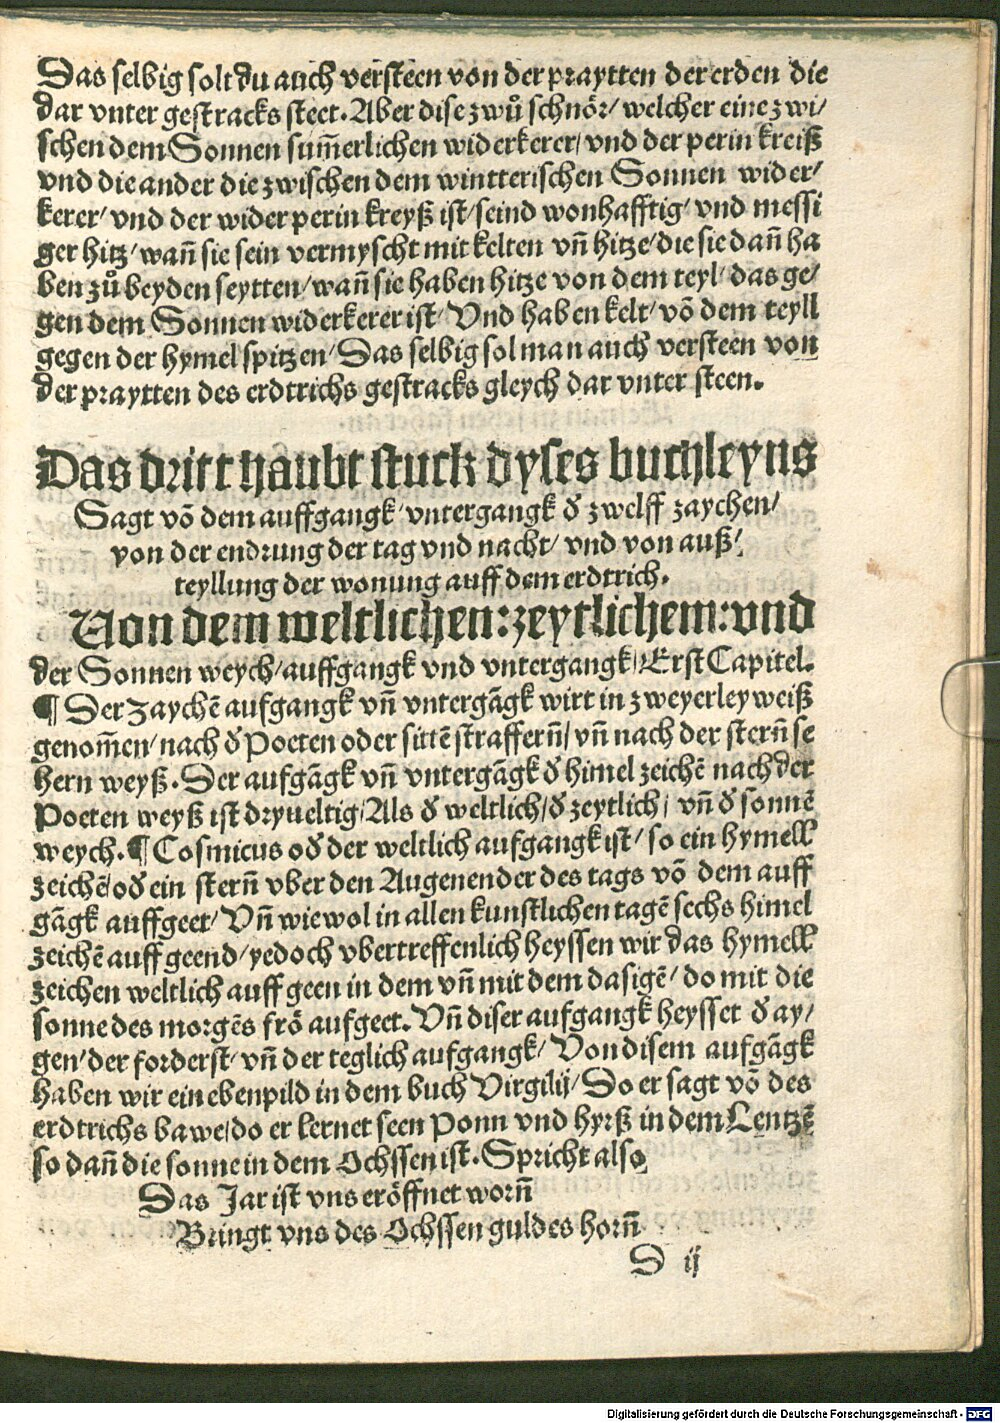 Das selbig solt du auch versteen von der praytten der erden die
dar vnter gestracks steet. Aber dise zwů schnör/ welcher eine zwi/
schen dem Sonnen sum̃erlichen widerkerer/ vnd der perin kreiß
vnd die ander die zwischen dem wintterischen Sonnen wider/
kerer/ vnd der wider perin kreyß ist/ seind wonhafftig/ vnd messi
ger hitz/ wañ sie sein vermyscht mit kelten vñ hitze/ die sie dañ ha
ben zů beyden seytten/ wañ sie haben hitze von dem teyl/ das ge/
gen dem Sonnen widerkerer ist/ Vnd haben kelt/ võ dem teyll
gegen der hymel spitzen/ Das selbig sol man auch versteen von
der praytten des erdtrichs gestracks gleych dar vnter steen.
Das dritt haubt stuck dyses buchleyns
Sagt võ dem auffgangk/ vntergangk ð zwelff zaychen/
von der endrung der tag vnd nacht/ vnd von auß/
teyllung der wonung auff dem erdtrich.
Von dem weltlichen: zeytlichem: vnd
der Sonnen weych/ auffgangk vnd vntergangk/ Erst Capitel.
¶ Der zaychẽ aufgangk vñ vntergãgk wirt in zweyerley weiß
genom̃en/ nach ð Poeten oder sittẽ straffern̄/ vñ nach der stern̄ se
hern weyß. Der aufgãgk vñ vntergãgk ð himel zeichẽ nach der
Poeten weyß ist dryueltig/ Als ð weltlich/ ð zeytlich/ vñ ð sonnẽ
weych. ¶ Cosmicus oð der weltlich aufgangk ist/ so ein hymell
zeichẽ/ oð ein stern̄ vber den Augenender des tags võ dem auff
gãgk auffgeet/ Vñ wiewol in allen kunstlichen tagẽ sechs himel
zeichẽ auff geend/ yedoch vbertreffenlich heyssen wir das hymell
zeichen weltlich auff geen in dem vñ mit dem dasigẽ/ do mit die
sonne des morgẽs frö aufgeet. Vñ diser aufgangk heysset ð ay/
gen/ der forderst/ vñ der teglich aufgangk/ Von disem aufgãgk
haben wir ein ebenpild in dem buch Virgilij/ Do er sagt võ des
erdtrichs bawe/ do er lernet seen Ponn vnd hyrß in dem Lentzẽ
so dañ die sonne in dem Ochssen ist. Spricht also
Das Jar ist vns eröffnet worn̄
Bringt vns des Ochssen guldes horn̄
D ij
Digitalisierung gefördert durch die Deutsche Forschungsgemeinschaft - DFG